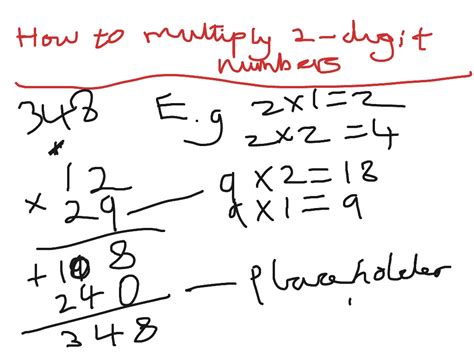 How to multiply 2-digit
numbers
348
E.g 2x1=2
2x2=4
12
x 29
9x2=18
9x1=9
+108
240
348
Placeholder